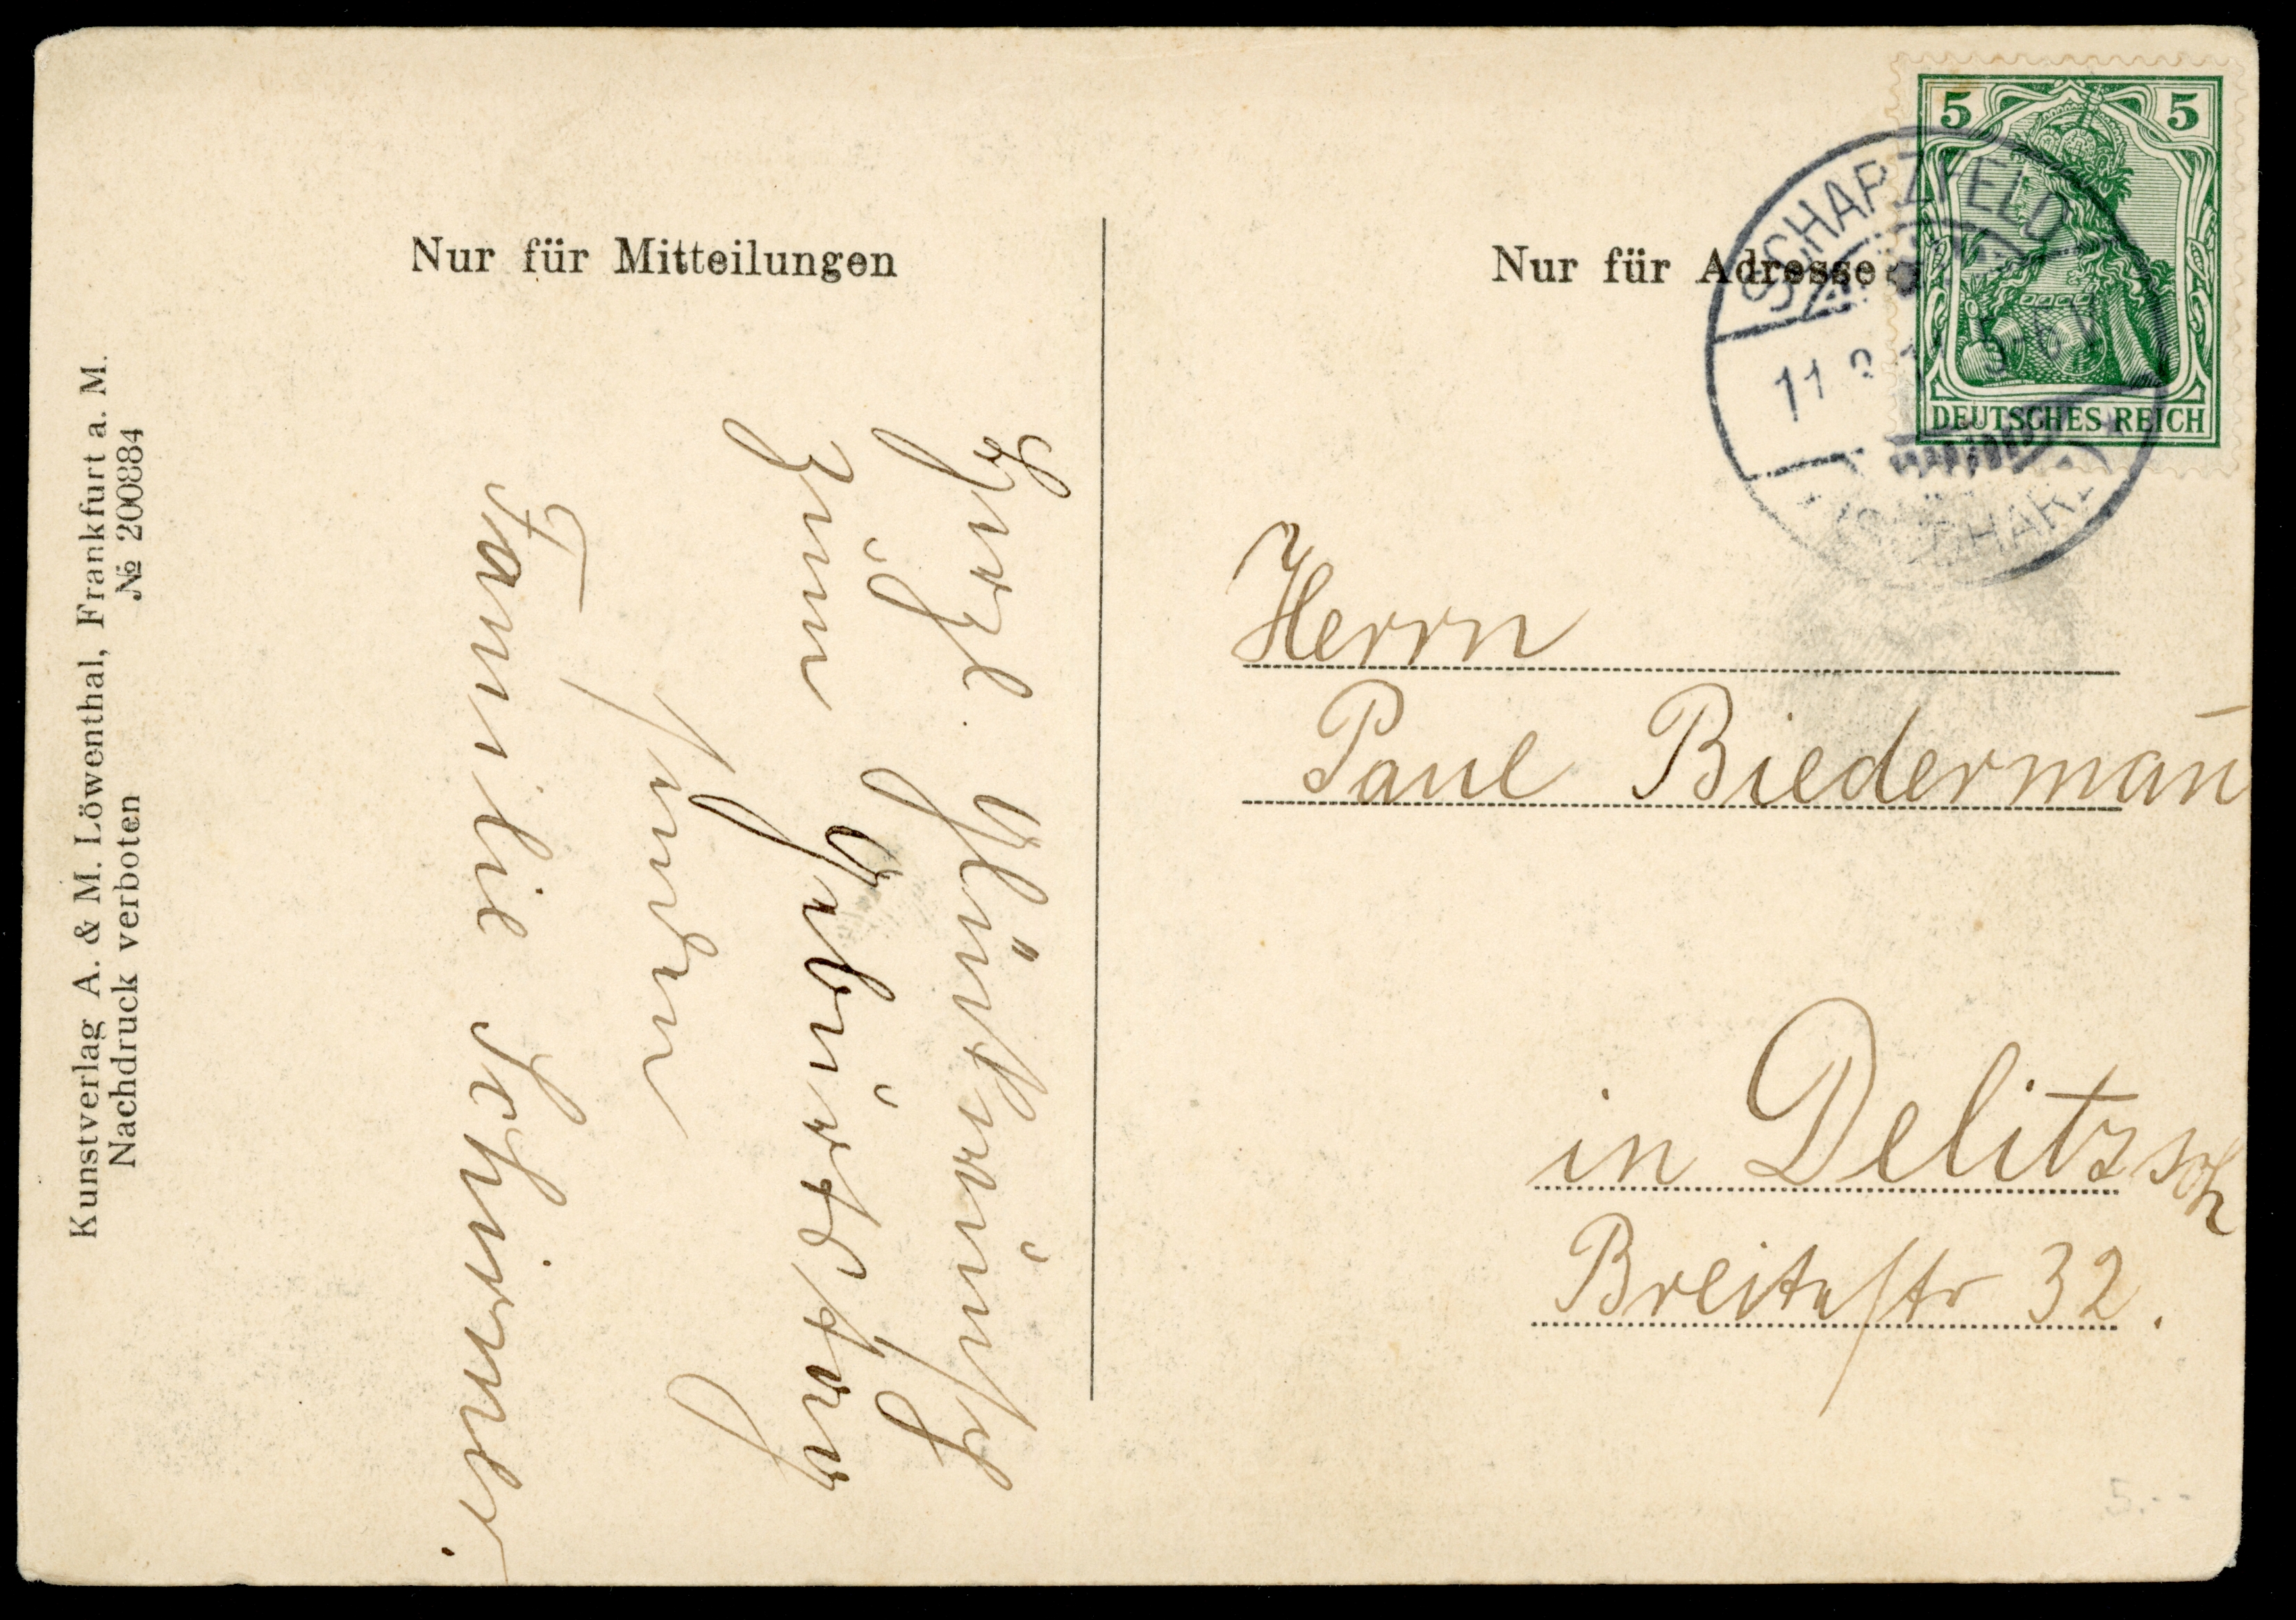 Nur für Mitteilungen
Nur für Adresse
5 5
DEUTSCHES REICH
SCHARZFELD
11
5-6 V
HARZ
Kunstverlag A. & M. Löwenthal, Frankfurt a. M.
Nachdruck verboten № 200884
Herzl. Glückwunsch
zum Geburtstag
senden
Familie Schirmer.
Herrn
Paul Biederman̄
in Delitzsch
Breitestr 32.
5.--